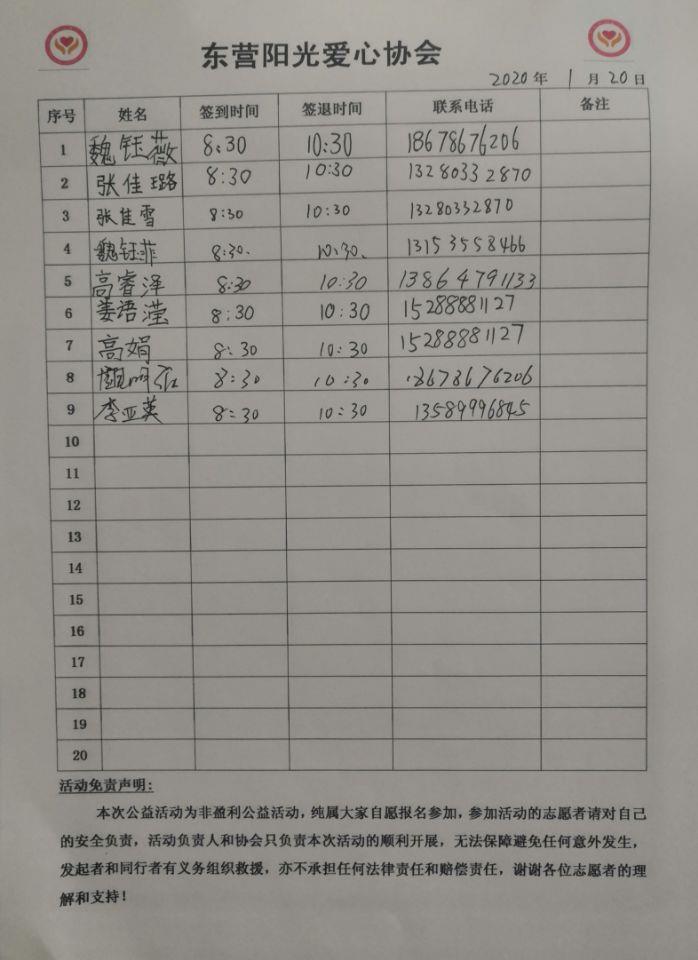 东营阳光爱心协会
2020年 1月20日
序号 姓名 签到时间 签退时间 联系电话 备注
1 魏钰薇 8:30 10:30 18678676206
2 张佳璐 8:30 10:30 13280332870
3 张佳雪 8:30 10:30 13280332870
4 魏钰菲 8:30. 10:30. 13153558466
5 高睿泽 8:30 10:30 13864791133
6 姜语滢 8:30 10:30 15288881127
7 高娟 8:30 10:30 15288881127
8 8:30 10:30 18678676206
9 李亚英 8:30 10:30 13589996845
10
11
12
13
14
15
16
17
18
19
20
活动免责声明:
本次公益活动为非盈利公益活动，纯属大家自愿报名参加，参加活动的志愿者请对自己
的安全负责，活动负责人和协会只负责本次活动的顺利开展，无法保障避免任何意外发生，
发起者和同行者有义务组织救援，亦不承担任何法律责任和赔偿责任，谢谢各位志愿者的理
解和支持！